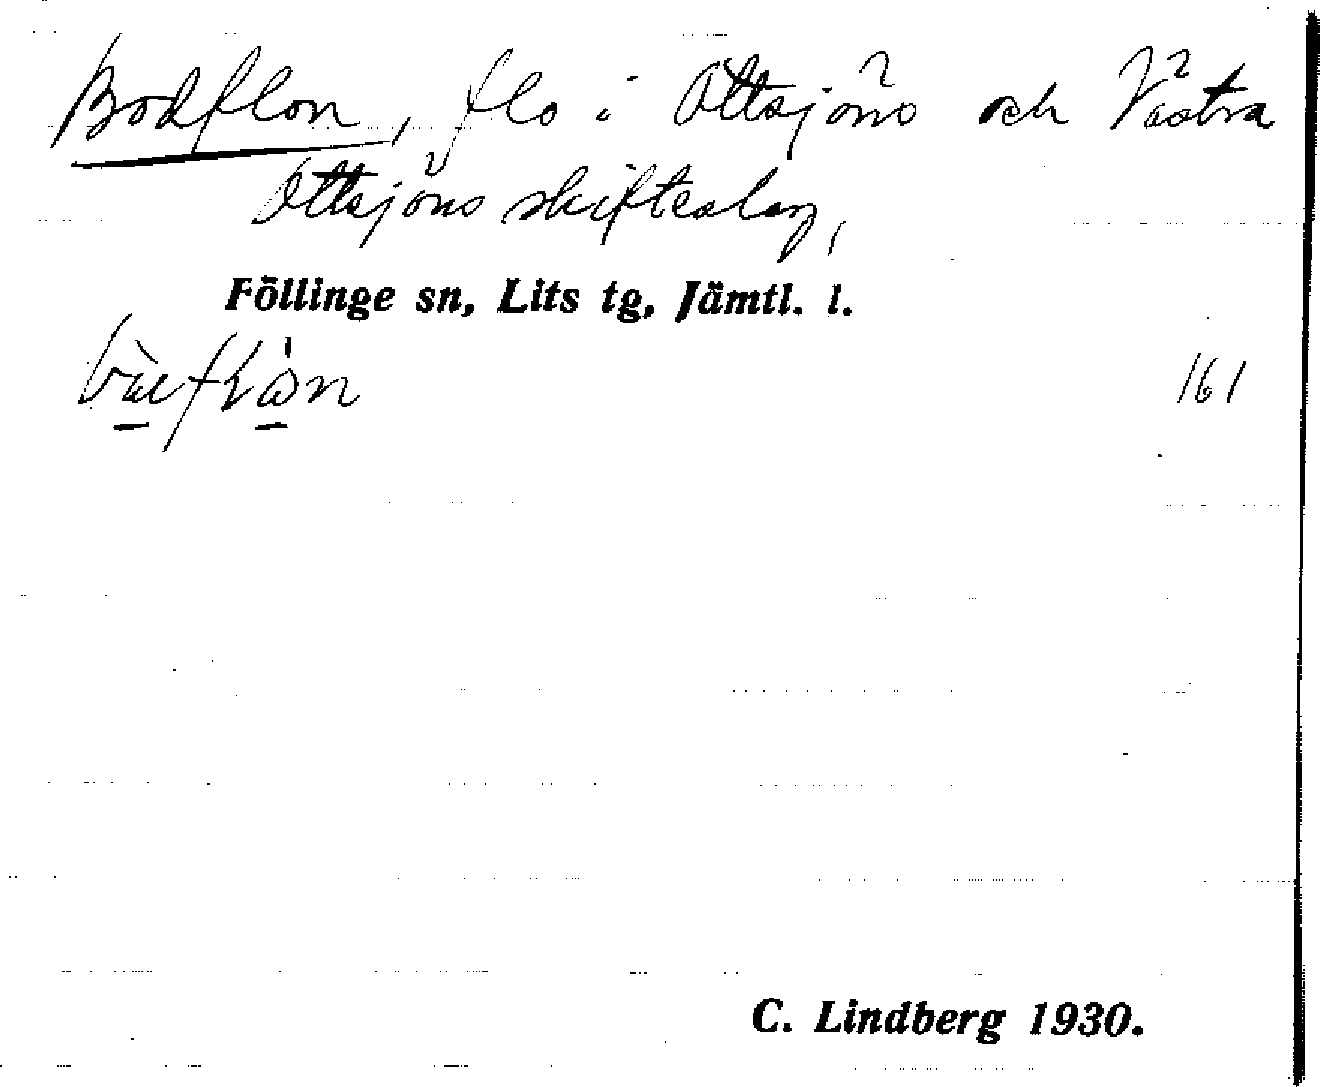 Bodflon, flo i Ottsjöns och Västra
Ottsjöns skifteslag,
Föllinge sn, Lits tg, Jämtl. l.
161
C. Lindberg 1930.